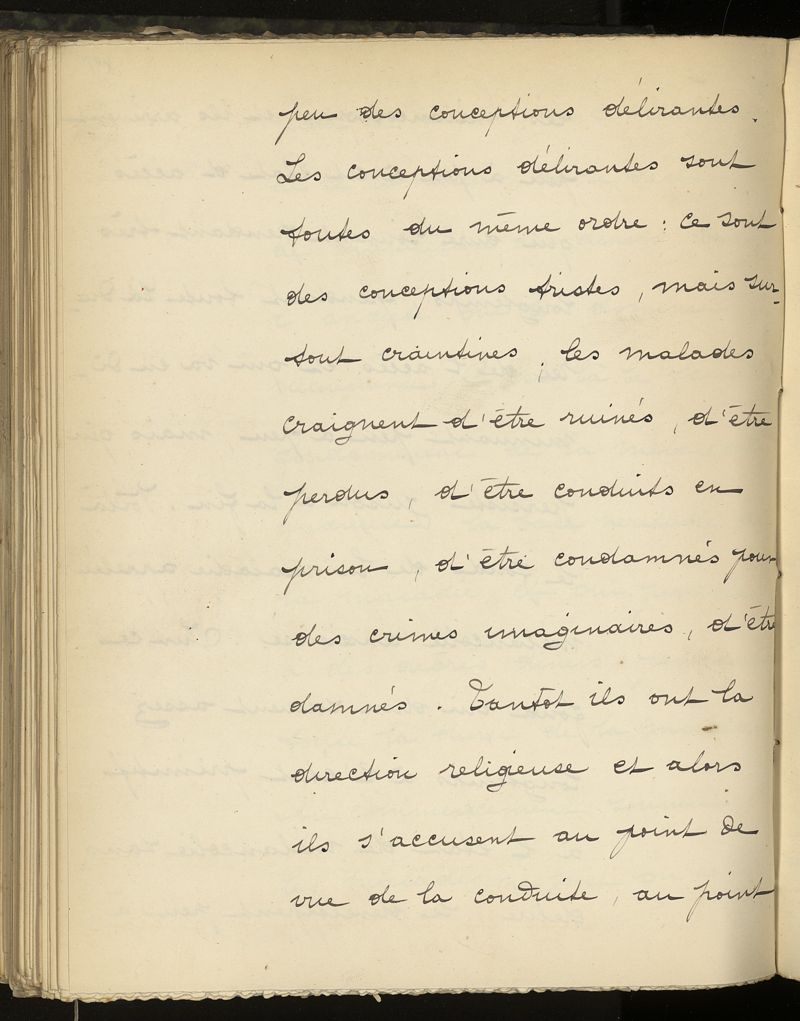 peu des conceptions délirantes.
Les conceptions délirantes sont
toutes du même ordre : ce sont
des conceptions tristes, mais sur-
tout craintives ; les malades
craignent d'être ruinés, d'être
perdus, d'être conduits en
prison, d'être condamnés pour
des crimes imaginaires, d'être
damnés. Tantôt ils ont la
direction religieuse et alors
ils s'accusent au point de
vue de la conduite, au point